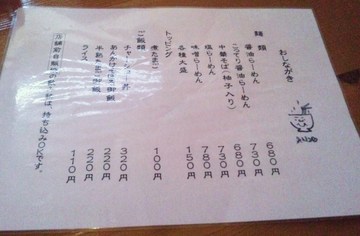 おしながき
麺類
醤油らーめん 680円
こってり醤油らーめん 730円
中華そば(柚子入り) 680円
塩らーめん 730円
味噌らーめん 780円
各種大盛 150円
トッピング
煮たまご 100円
ご飯類
チャーシュー丼 320円
あんかけそぼろ御飯 220円
半熟たまご御飯 220円
ライス 110円